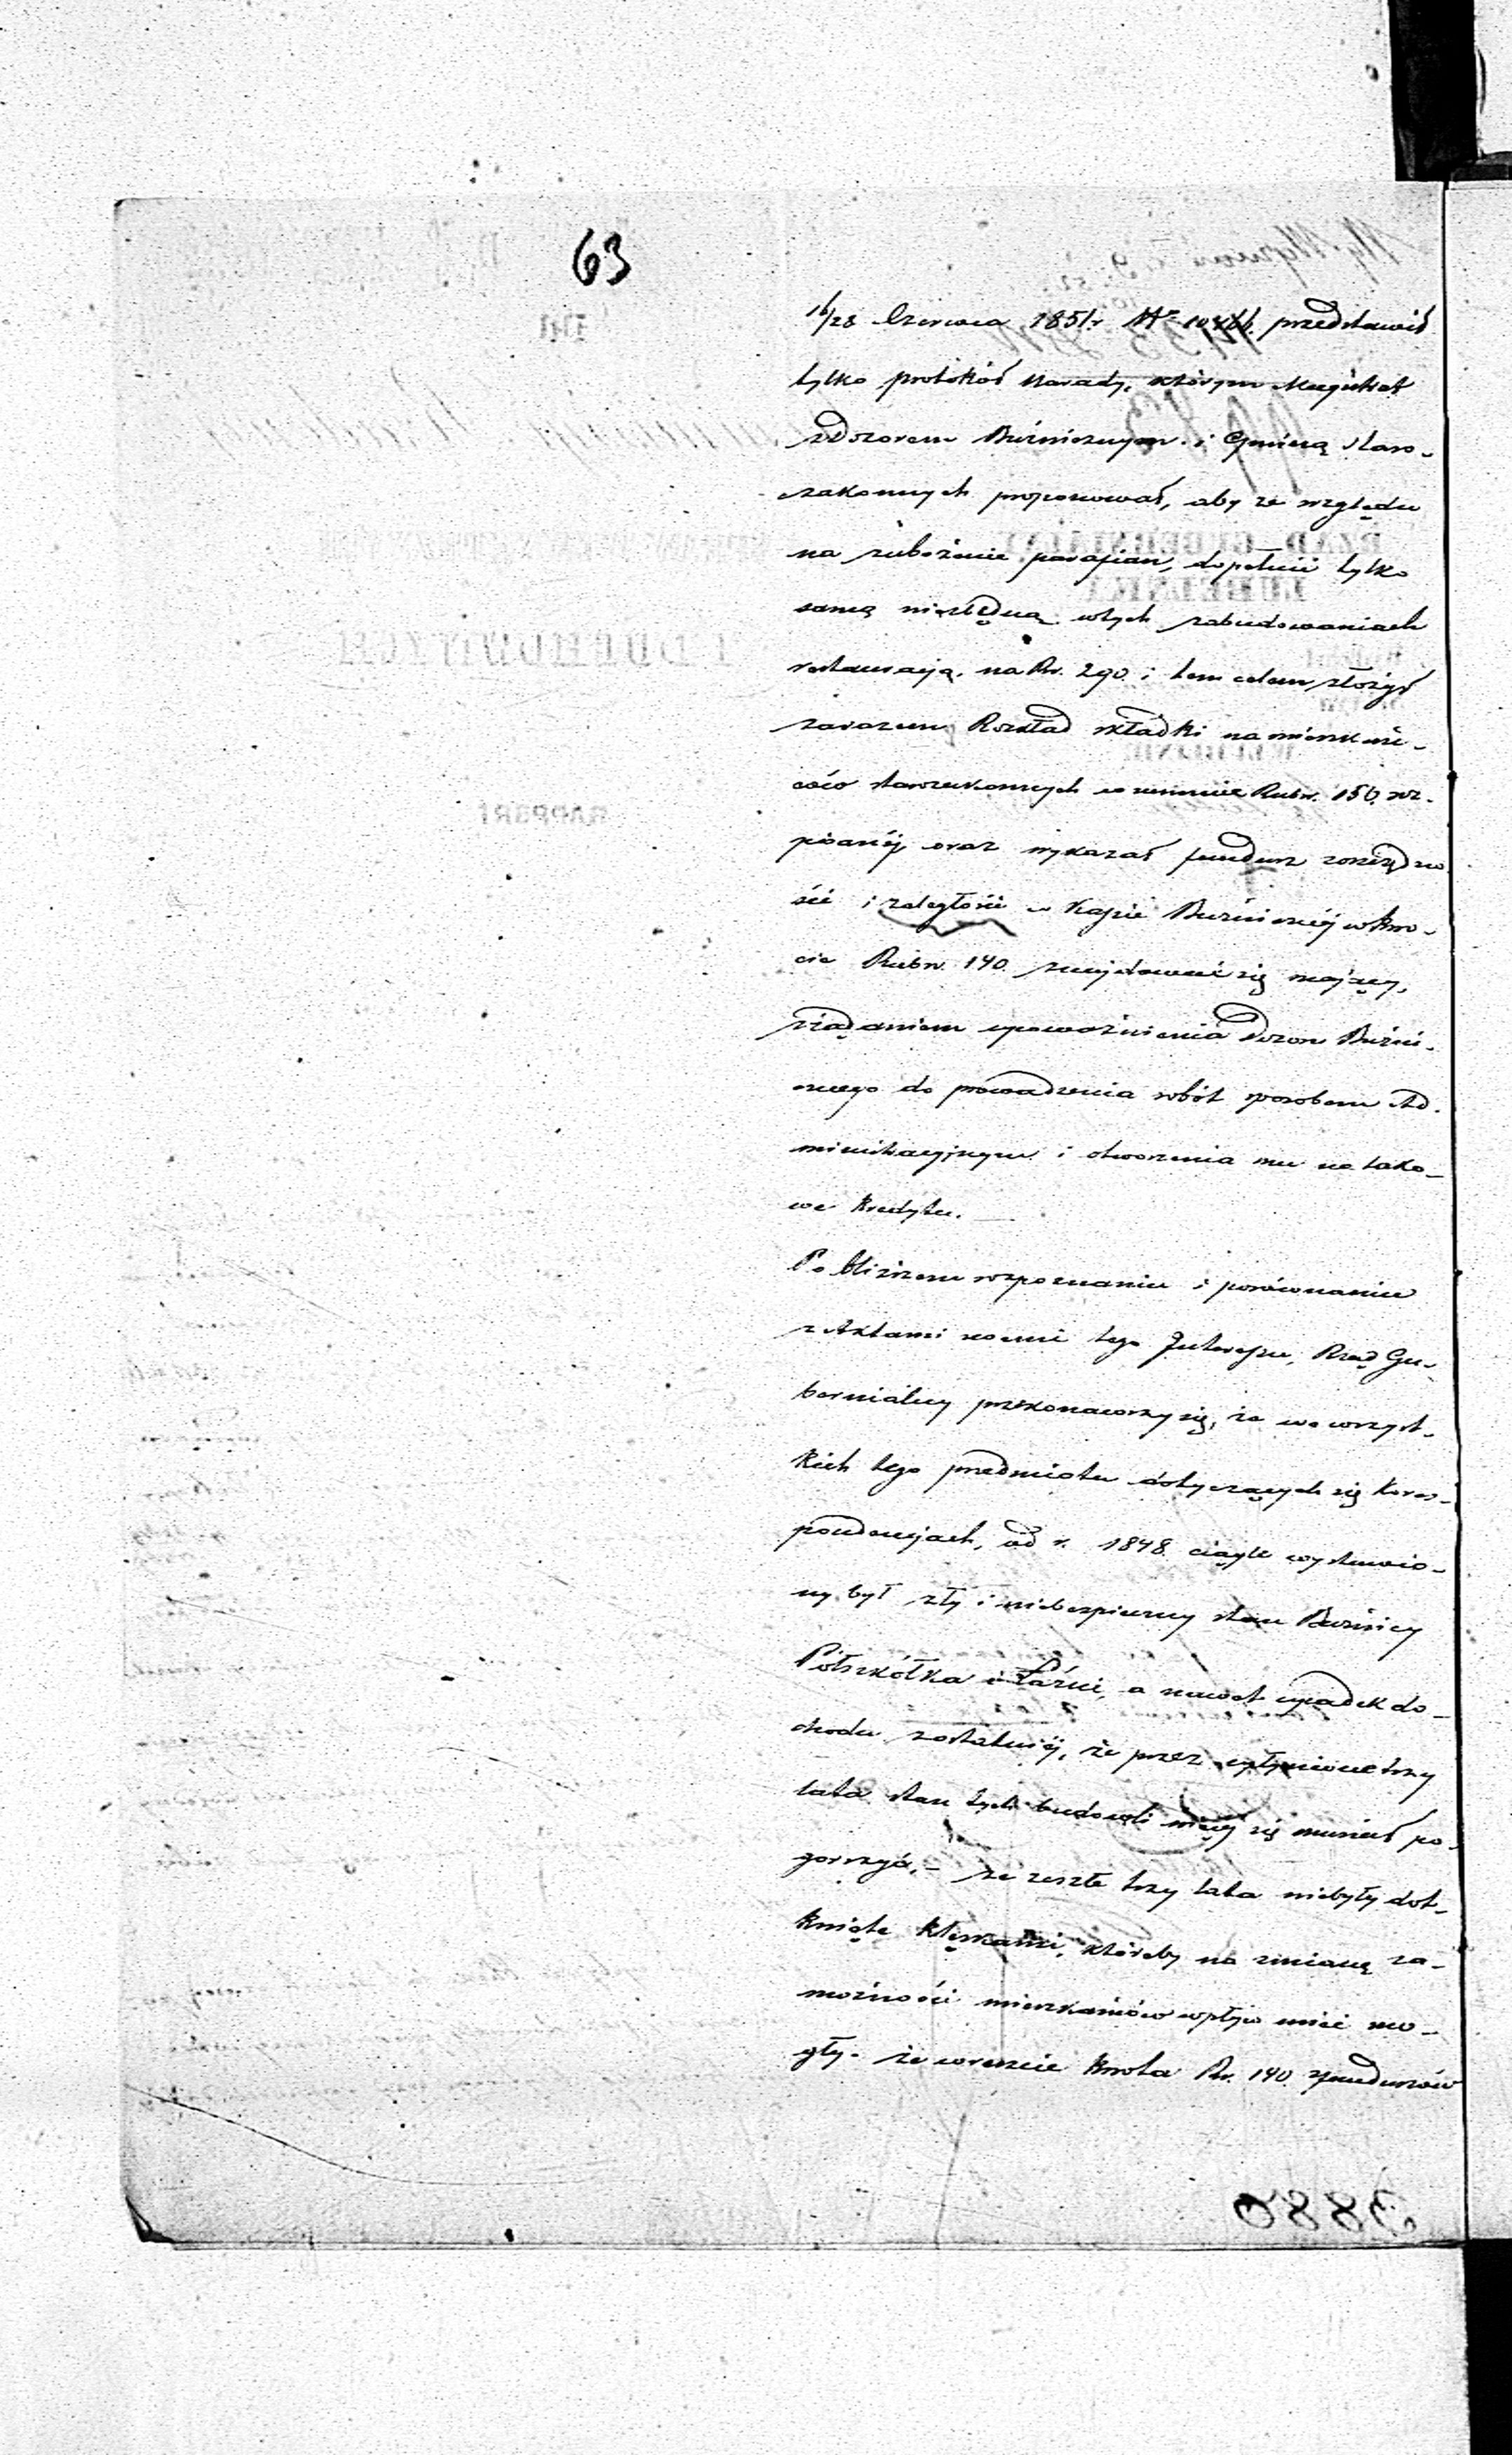 63
16/28 Czerwca 1851 r. Nr przedstawił
tylko protokół Narady, którym Magistrat
z Dozorem Bużniczym i Gminą Staro-
zakonnych proponował, aby ze względu
na zubożenie parafian, dopełnić tylko
samą niezbędną w tych zabudowaniach
restauracją, na Rs. 290. i tem celem złożył
zarazem Rozkład składki na mieszkań-
ców starozakonnych w summie Rubsr. 150. roz-
pisanéj oraz wykazał fundusz z oszczędno
ści i zaległości w Kassie Bużniczéj w kwo-
cie Rubsr. 140. znajdować się mający,
z żądaniem upoważnienia Dozoru Bużni-
cznego do prowadzenia robót sposobem Ad-
ministracyjnym i otworzenia mu na tako-
we kredytu.
Po bliższem rozpoznaniu i porównaniu
z Aktami tego Interessu, Rząd Gu-
bernialny przekonawszy się, że we wszyst-
kich tego przedmiotu dotyczących się Kores-
pondencjach, od r. 1848. ciągle wystawio-
ny był zły i niebezpieczny stan Bużnicy
Półszkółka i Łaźni, a nawet upadek do-
chodu z ostatniéj, że przez upłynione trzy
lata stan tych budowli więcéj się musiał po-
gorszyć, – że zeszłe trzy lata niebyły dot-
knięte klęskami, któreby na zmianę za-
możności mieszkańców wpływ mieć mo-
gły. że wreszcie kwota Rs. 140. z funduszów
3880